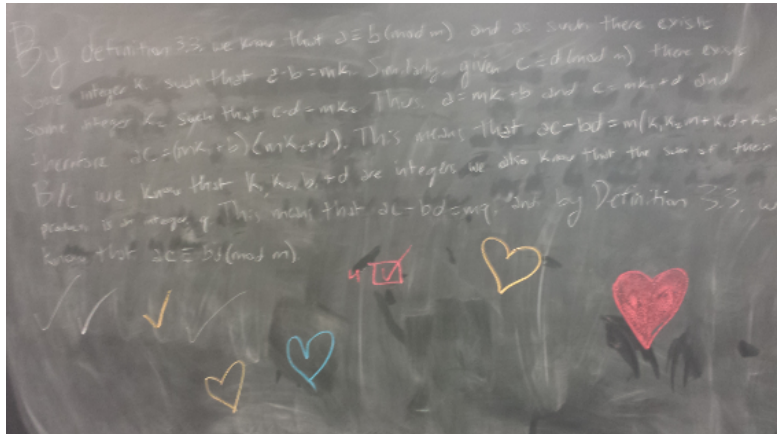 By definition 3.3, we know that a≡b(mod m) and as such there exists
some integer k, such that a-b=mk. Similarly, given c≡d(mod m) there exists
some integer k₂ such that c-d=mk₂. Thus a=mk+b and c=mk₂+d and
therefore ac=(mk₁+b)(mk₂+d). This means that ac-bd=m(k₁k₂m+k₁d+k₂
B/c we know that k₁,k₂,b,+d are integers we also know that the sum of their
products is an integer q. This means that ac-bd=mq. and by Definition 3.3, we
know that ac≡bd(mod m)